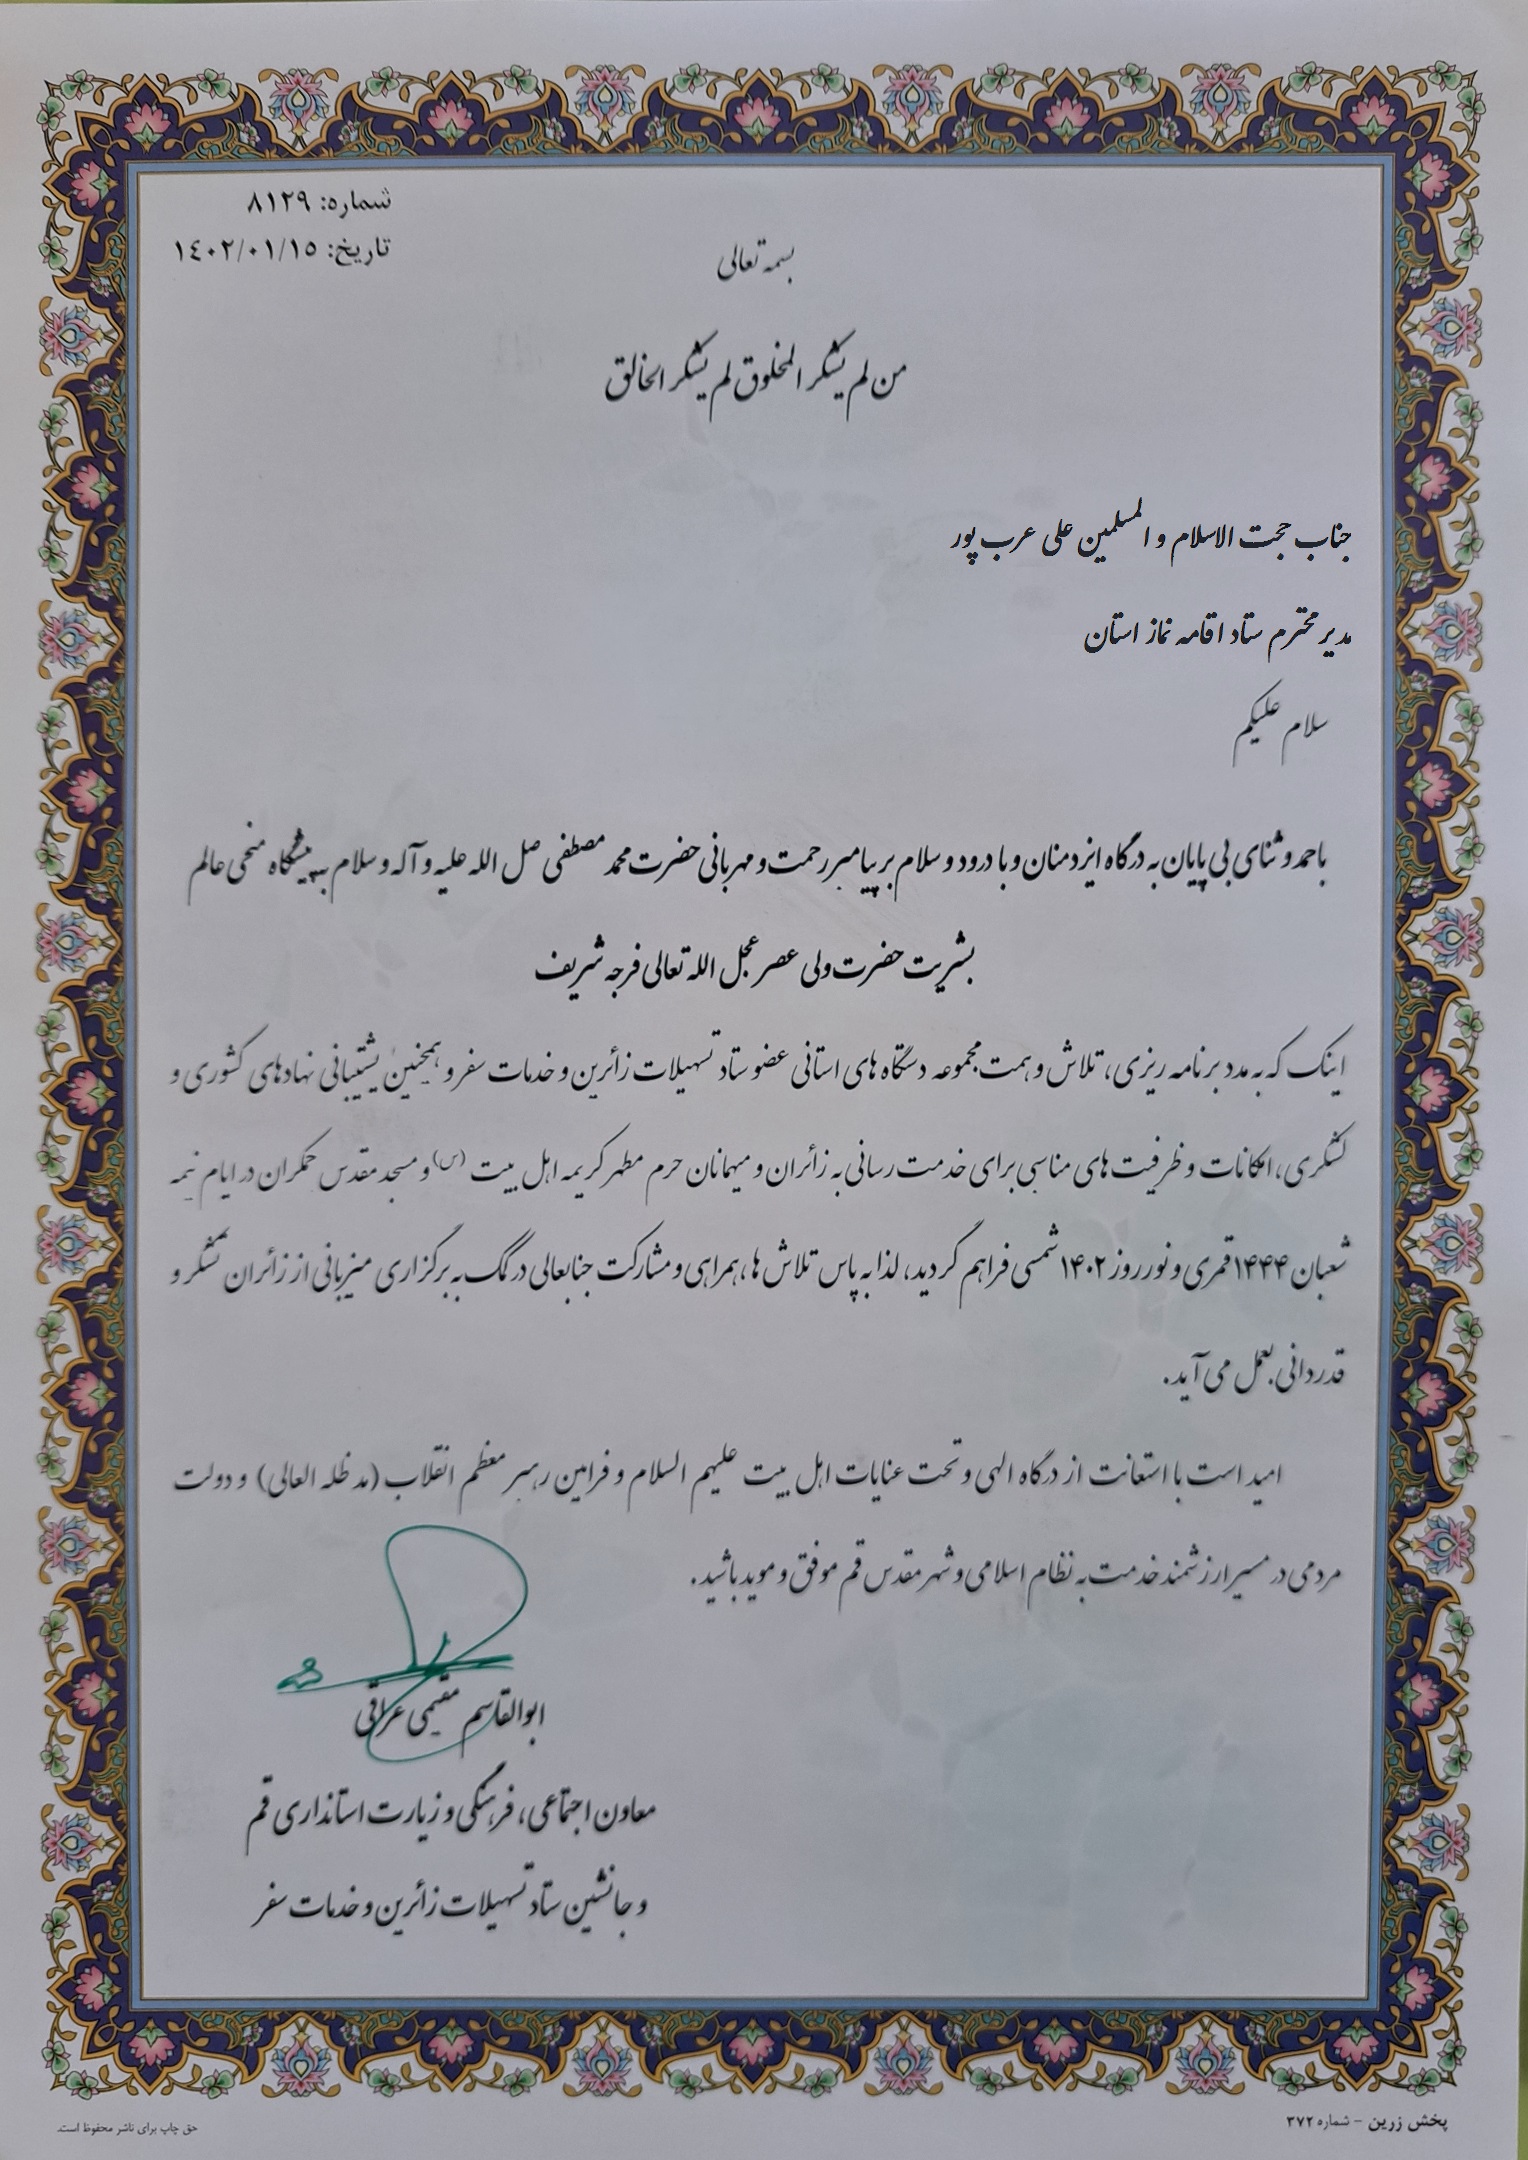 شماره: ۸۱۲۹
تاریخ: ۱۴۰۲/۰۱/۱۵
بسمه تعالی
من لم یشکر المخلوق لم یشکر الخالق
جناب حجت الاسلام و المسلمین علی عرب پور
مدیر محترم ستاد اقامه نماز استان
سلام علیکم
با حمد و ثنای بی پایان به درگاه ایزد منان و با درود و سلام بر پیامبر رحمت و مهربانی حضرت محمد مصطفی صل الله علیه و آله و سلام به پیشگاه منجی عالم
بشریت حضرت ولی عصر عجل الله تعالی فرجه شریف
اینک که به مدد برنامه ریزی، تلاش و همت مجموعه دستگاه های استانی عضو ستاد تسهیلات زائرین و خدمات سفر و همچنین پشتیبانی نهادهای کشوری و
لشکری، امکانات و ظرفیت های مناسبی برای خدمت رسانی به زائران و میهمانان حرم مطهر کریمه اهل بیت (س) و مسجد مقدس جمکران در ایام نیمه
شعبان ۱۴۴۴ قمری و نوروز ۱۴۰۲ شمسی فراهم گردید، لذا به پاس تلاش ها، همراهی و مشارکت جنابعالی در کمک به برگزاری میزبانی از زائران تشکر و
قدردانی بعمل می آید.
امید است با استعانت از درگاه الهی و تحت عنایات اهل بیت علیهم السلام و فرامین رهبر معظم انقلاب (مد ظله العالی) و دولت
مردمی در مسیر ارزشمند خدمت به نظام اسلامی و شهر مقدس قم موفق و موید باشید.
ابوالقاسم مقیمی عراقی
معاون اجتماعی، فرهنگی و زیارت استانداری قم
و جانشین ستاد تسهیلات زائرین و خدمات سفر
پخش زرین - شماره ۳۷۲
حق چاپ برای ناشر محفوظ است.